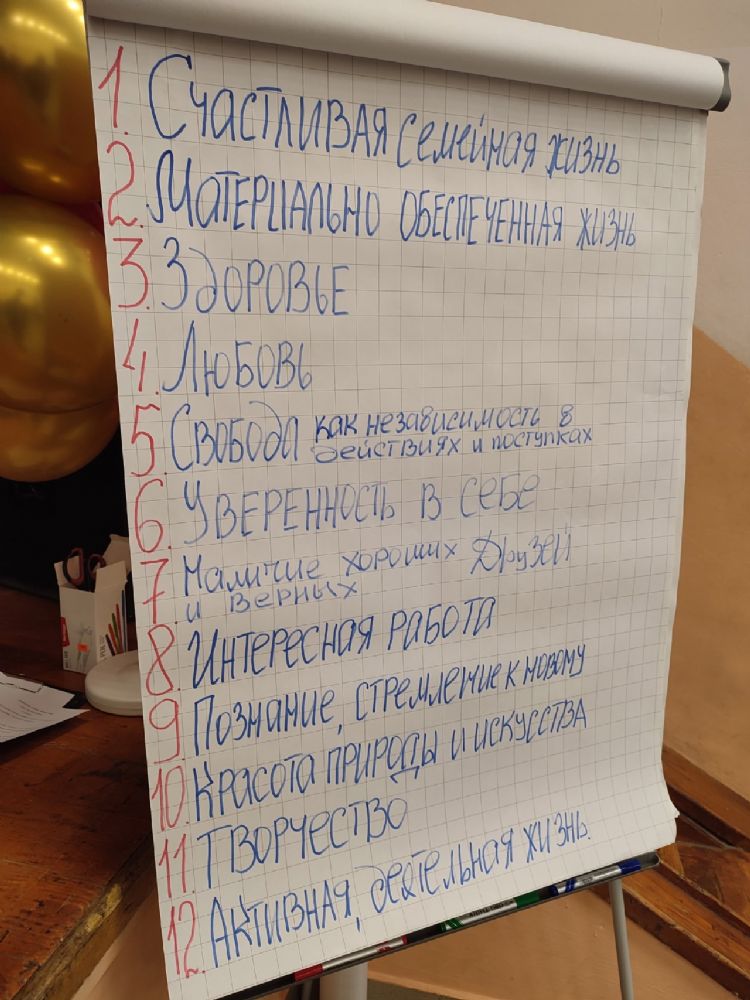 1. Счастливая семейная жизнь
2. Материально обеспеченная жизнь
3. Здоровье
4. Любовь
5. Свобода как независимость в
действиях и поступках
6. Уверенность в себе
7. Наличие хороших Друзей
и верных
8. Интересная работа
9. Познание, стремление к новому
10. Красота природы и искусства
11 Творчество
12. Активная, деятельная жизнь.